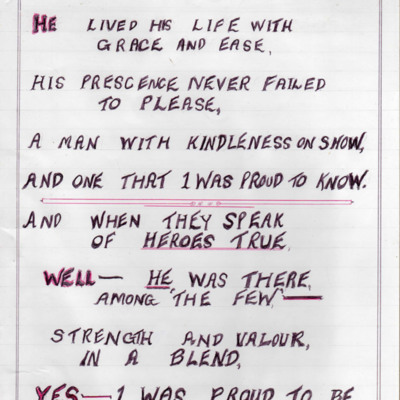 HE LIVED HIS LIFE WITH
GRACE AND EASE,
HIS PRESCENCE NEVER FAILED
TO PLEASE,
A MAN WITH KINDLENESS ON SHOW,
AND ONE THAT I WAS PROUD TO KNOW.
AND WHEN THEY SPEAK
OF HEROES TRUE,
WELL— HE WAS THERE,
AMONG THE FEW,—
STRENGTH AND VALOUR,
IN A BLEND,
YES—I WAS PROUD TO BE